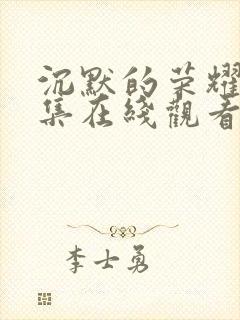 沉默的荣耀
集在綫觀看
李士勇